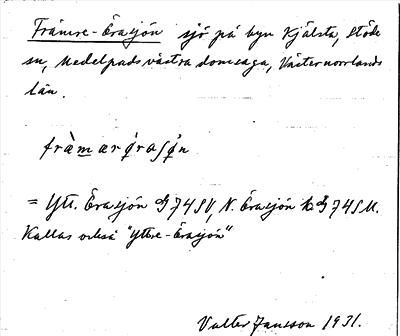 Främre-Örasjön sjö på byn Kjälsta, Stöde
sn, Medelpads västra domsaga, Västernorrlands
län.
fràmarørasøn
= Ytt. Örasjön G 74 SV, N. Örasjön G 74 SM.
Kallas också "Yttre-Örasjön"
Valter Jansson 1931.